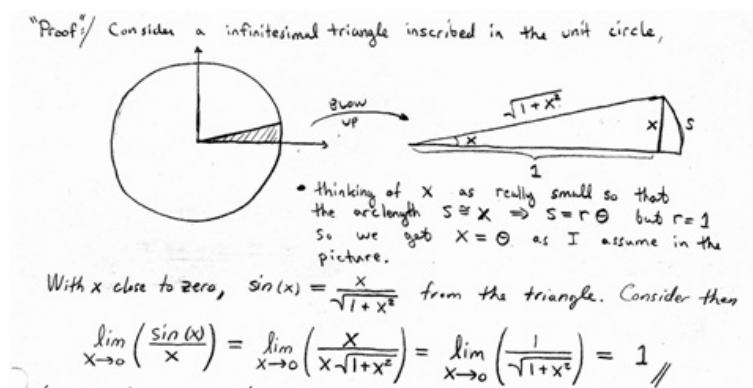 "Proof"/ Consider a infinitesimal triangle inscribed in the unit circle,
BLOW
UP
√(1+x²)
x
x
S
1
• thinking of x as really small so that
the arclength S ≅ x ⇒ S = rθ but r = 1
So we get x = θ as I assume in the
picture.
With x close to zero, sin(x) = x/√(1+x²) from the triangle. Consider then
lim x→0 (sin(x)/x) = lim x→0 (x/(x√(1+x²))) = lim x→0 (1/√(1+x²)) = 1 //